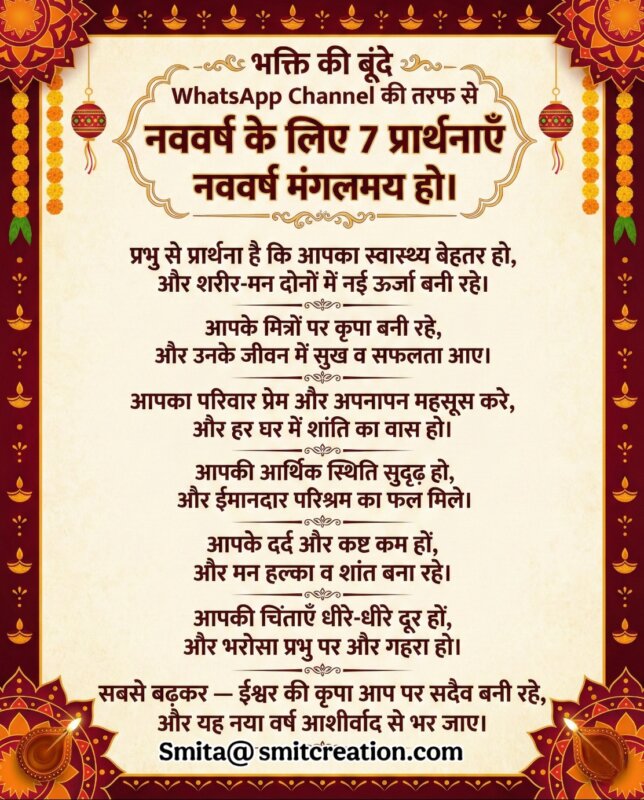 भक्ति की बूंदे
WhatsApp Channel की तरफ से
नववर्ष के लिए 7 प्रार्थनाएँ
नववर्ष मंगलमय हो।
प्रभु से प्रार्थना है कि आपका स्वास्थ्य बेहतर हो,
और शरीर-मन दोनों में नई ऊर्जा बनी रहे।
आपके मित्रों पर कृपा बनी रहे,
और उनके जीवन में सुख व सफलता आए।
आपका परिवार प्रेम और अपनापन महसूस करे,
और हर घर में शांति का वास हो।
आपकी आर्थिक स्थिति सुदृढ़ हो,
और ईमानदार परिश्रम का फल मिले।
आपके दर्द और कष्ट कम हों,
और मन हल्का व शांत बना रहे।
आपकी चिंताएँ धीरे-धीरे दूर हों,
और भरोसा प्रभु पर और गहरा हो।
सबसे बढ़कर — ईश्वर की कृपा आप पर सदैव बनी रहे,
और यह नया वर्ष आशीर्वाद से भर जाए।
Smita@ smitcreation.com